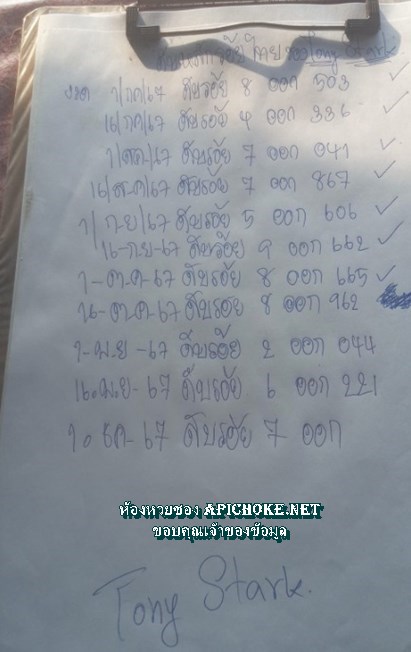 ดับหลักร้อย ไทย ของ Tony Stark
งวด 1/กค/67 ดับร้อย 8 ออก 503 ✓
16/กค/67 ดับร้อย 4 ออก 336 ✓
1/สค/67 ดับร้อย 7 ออก 041 ✓
16/ส.ค/67 ดับร้อย 7 ออก 867 ✓
1/ก-ย/67 ดับร้อย 5 ออก 606 ✓
16-ก.ย-67 ดับร้อย 9 ออก 662 ✓
1-ต-ค-67 ดับร้อย 8 ออก 665 ✓
16-ต-ค-67 ดับร้อย 8 ออก 962
1-พ.ย-67 ดับร้อย 2 ออก 044
16.พ.ย-67 ดับร้อย 6 ออก 221
1. ธค-67 ดับร้อย 7 ออก
ห้องหวยซอง APICHOKE.NET
ขอบคุณเจ้าของข้อมูล
Tony Stark.